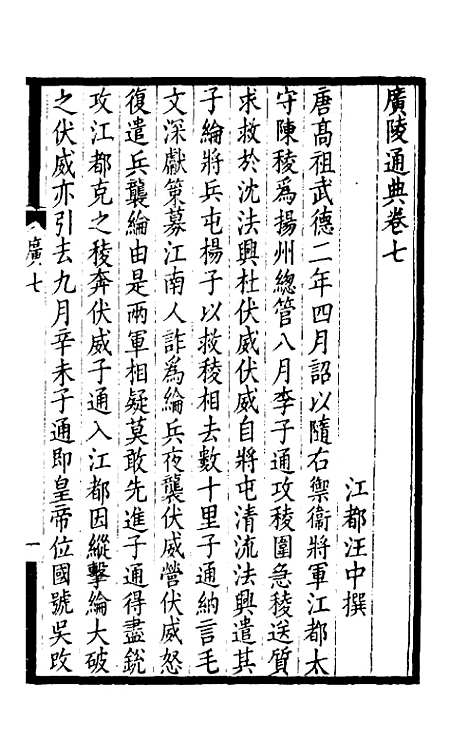 廣陵通典卷七
江都汪中撰
唐高祖武德二年四月詔以隨右禦衞將軍江都太
守陳稜爲揚州總管八月李子通攻稜圍急稜送質
求救於沈法興杜伏威伏威自將屯清流法興遣其
子綸將兵屯楊子以救稜相去數十里子通納言毛
文深獻策募江南人詐爲綸兵夜襲伏威營伏威怒
復遣兵襲綸由是兩軍相疑莫敢先進子通得盡銳
攻江都克之稜奔伏威子通入江都因縱擊綸大破
之伏威亦引去九月辛未子通即皇帝位國號吳改
廣七
一